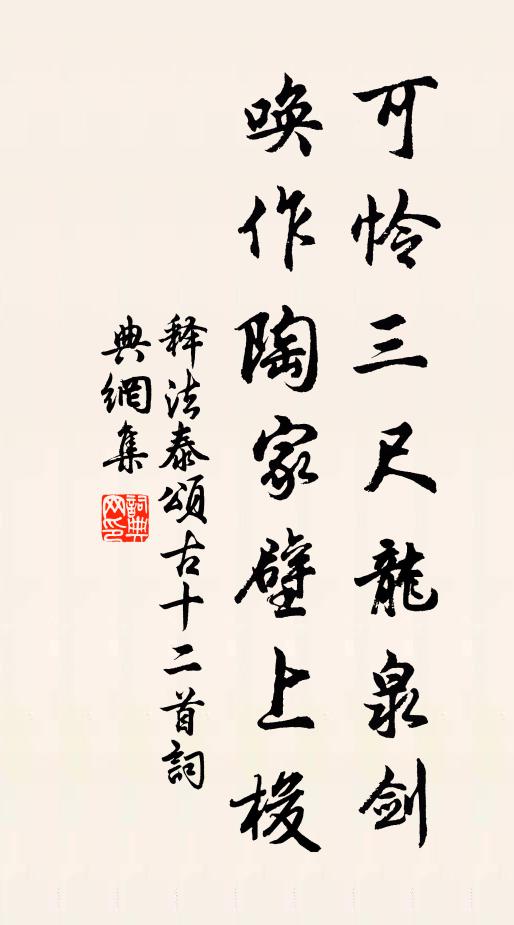 可怜三尺龍泉剑
唤作陶家壁上梭
释法泰頌古十二首詞
典網集
詞典網印